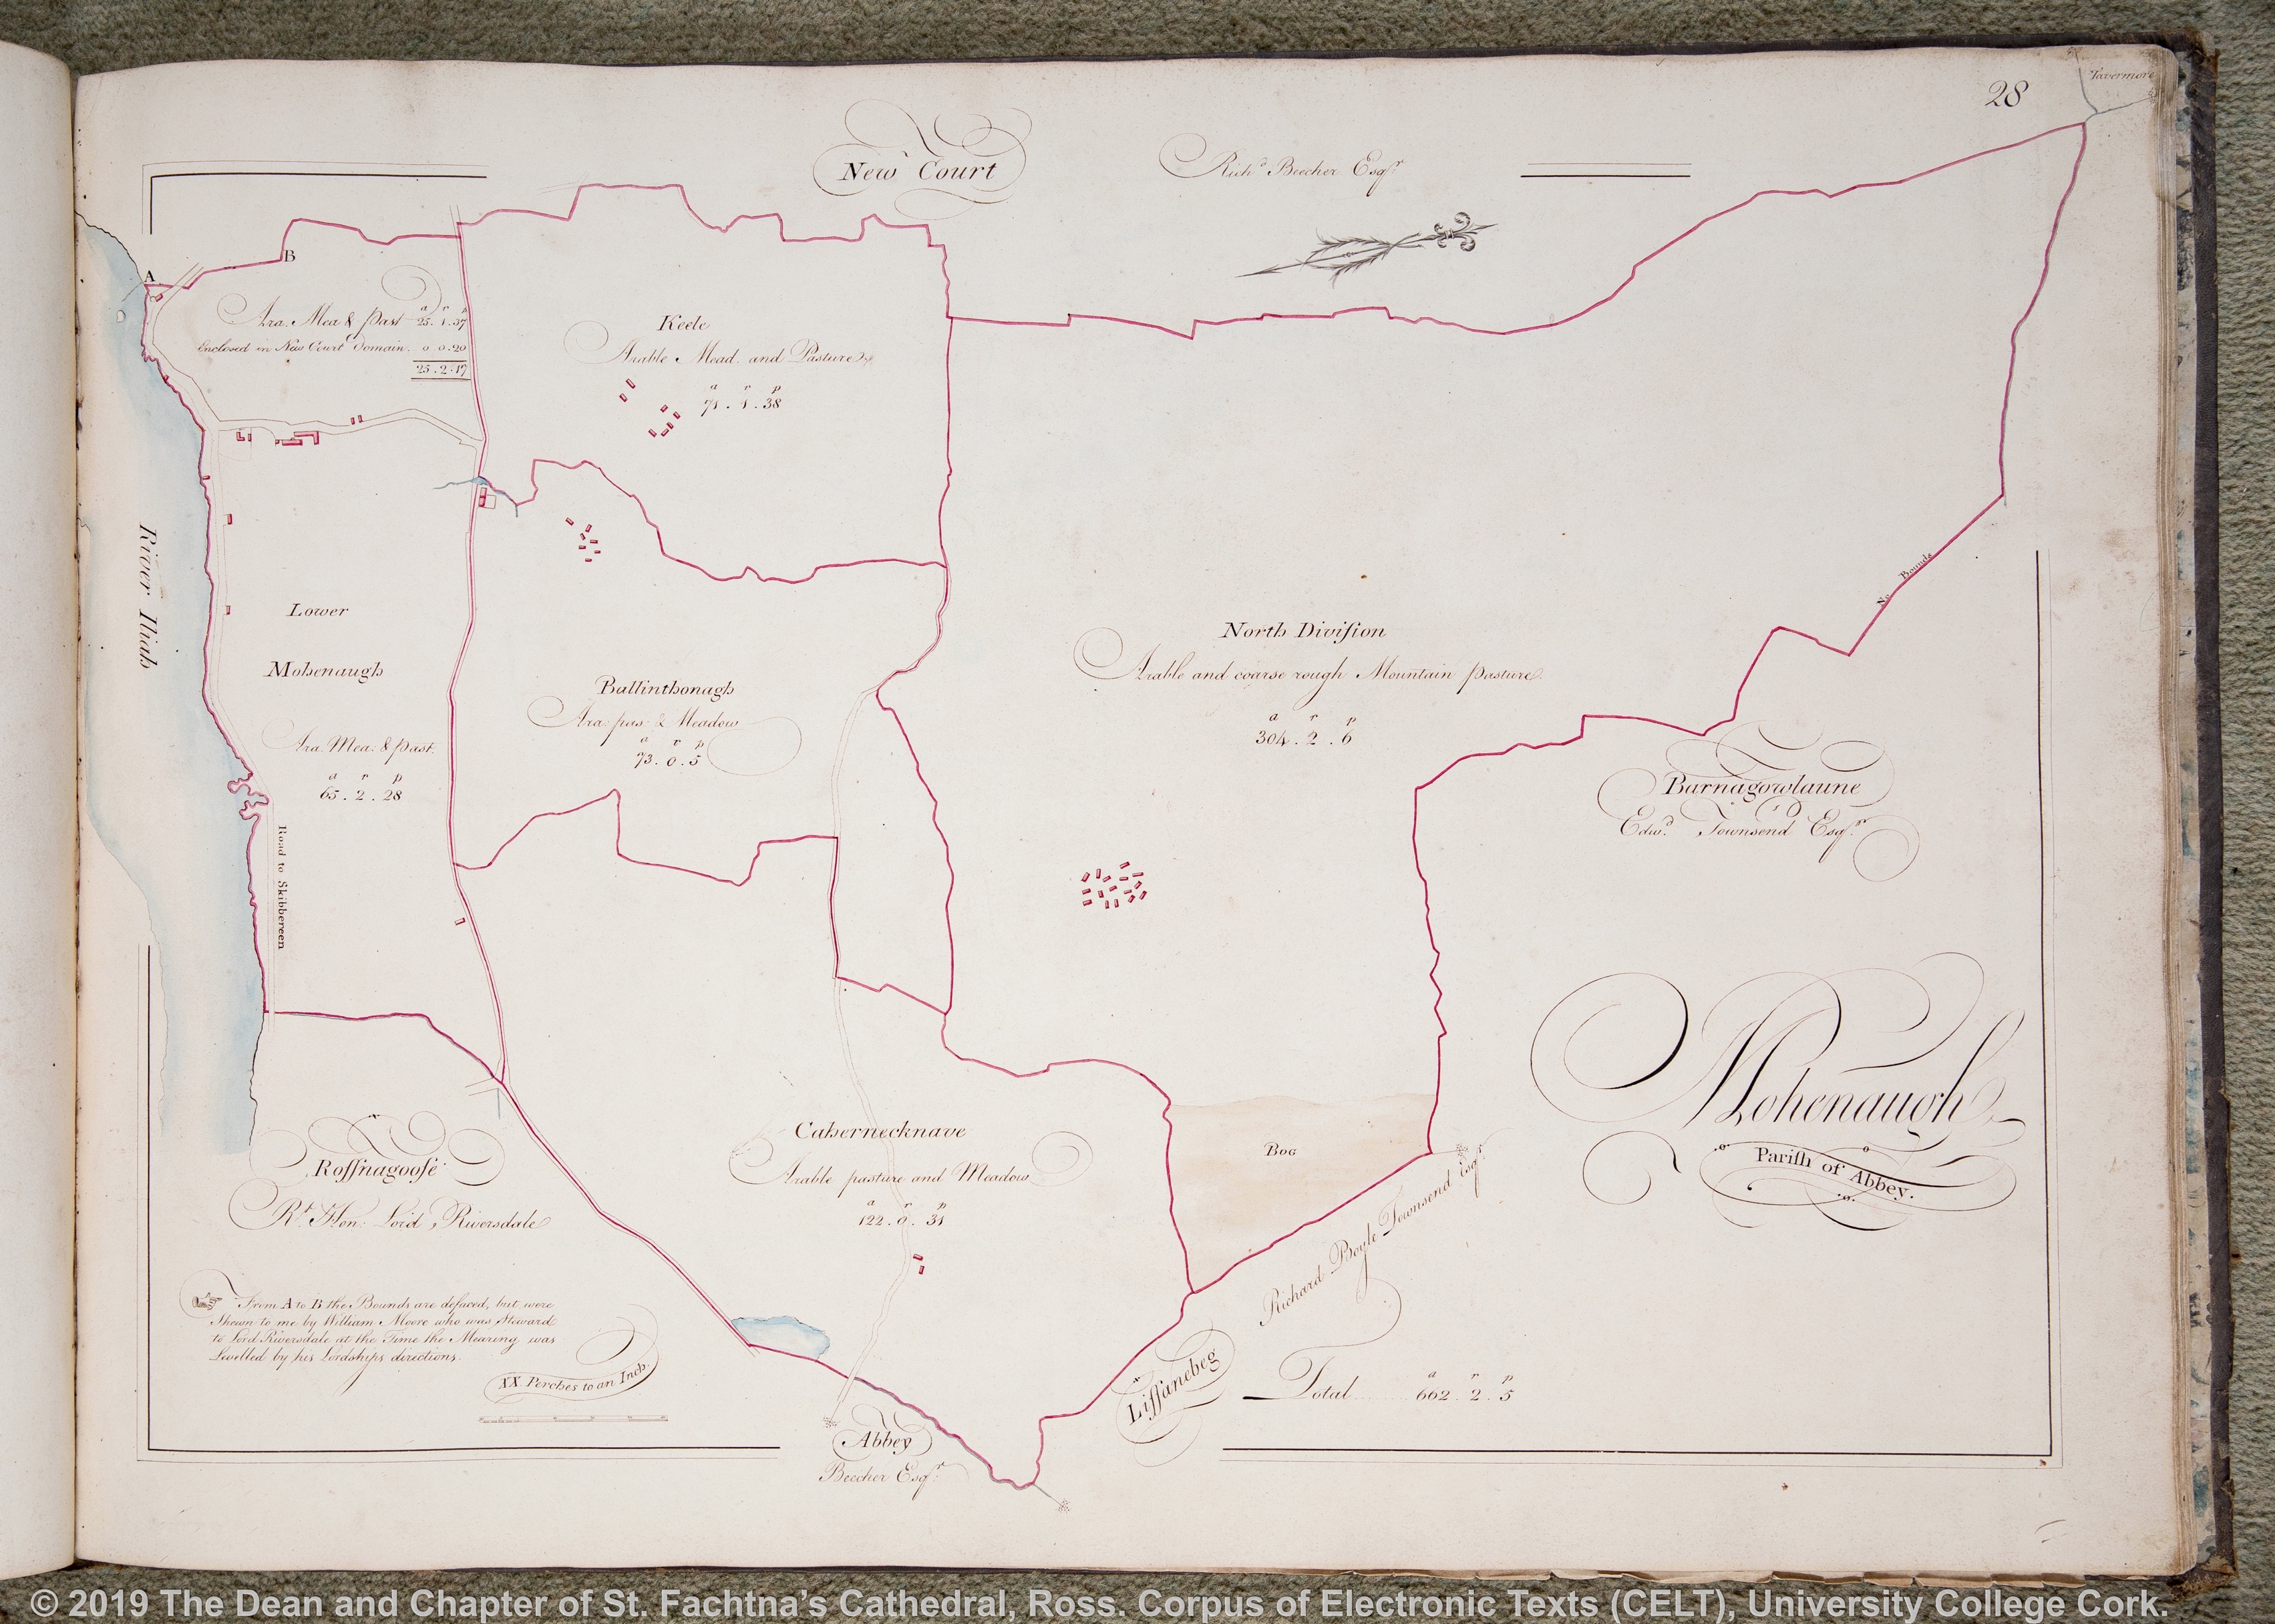 28
Tavermore
New Court
Richd. Beecher Esqr.
A
B
a r p
Ara. Mea & Past 25.1.37
Enclosed in New Court Domain. 0.0.20
25.2.17
Keele
Arable Mead. and Pasture
a r p
71.1.38
River Iliah
Lower
Mohenaugh
Ara. Mea: & Past.
a r p
65.2.28
Road to Skibbereen
Ballinthonagh
Ara: pas: & Meadow
a r p
73.0.5
North Diviſion
Arable and coarse rough Mountain Pasture.
a r p
304.2.6
No Bounds
Barnagowlaune
Edwd. Townsend Esqr.
Mohenaugh
Pariſh of Abbey.
Bog
Cahernecknave
Arable pasture and Meadow
a r p
122.0.31
Roſſnagooſe
Rt. Hon: Lord Riversdale
From A to B the Bounds are defaced, but were
Shewn to me by William Moore who was Steward
to Lord Riversdale at the Time the Mearing was
Levelled by his Lordships directions.
XX. Perches to an Inch.
Richard Boyle Townsend Esqr.
Liſſanebeg
a r p
Total 662.2.5
Abbey
Beecher Esqr.
© 2019 The Dean and Chapter of St. Fachtna’s Cathedral, Ross. Corpus of Electronic Texts (CELT), University College Cork.